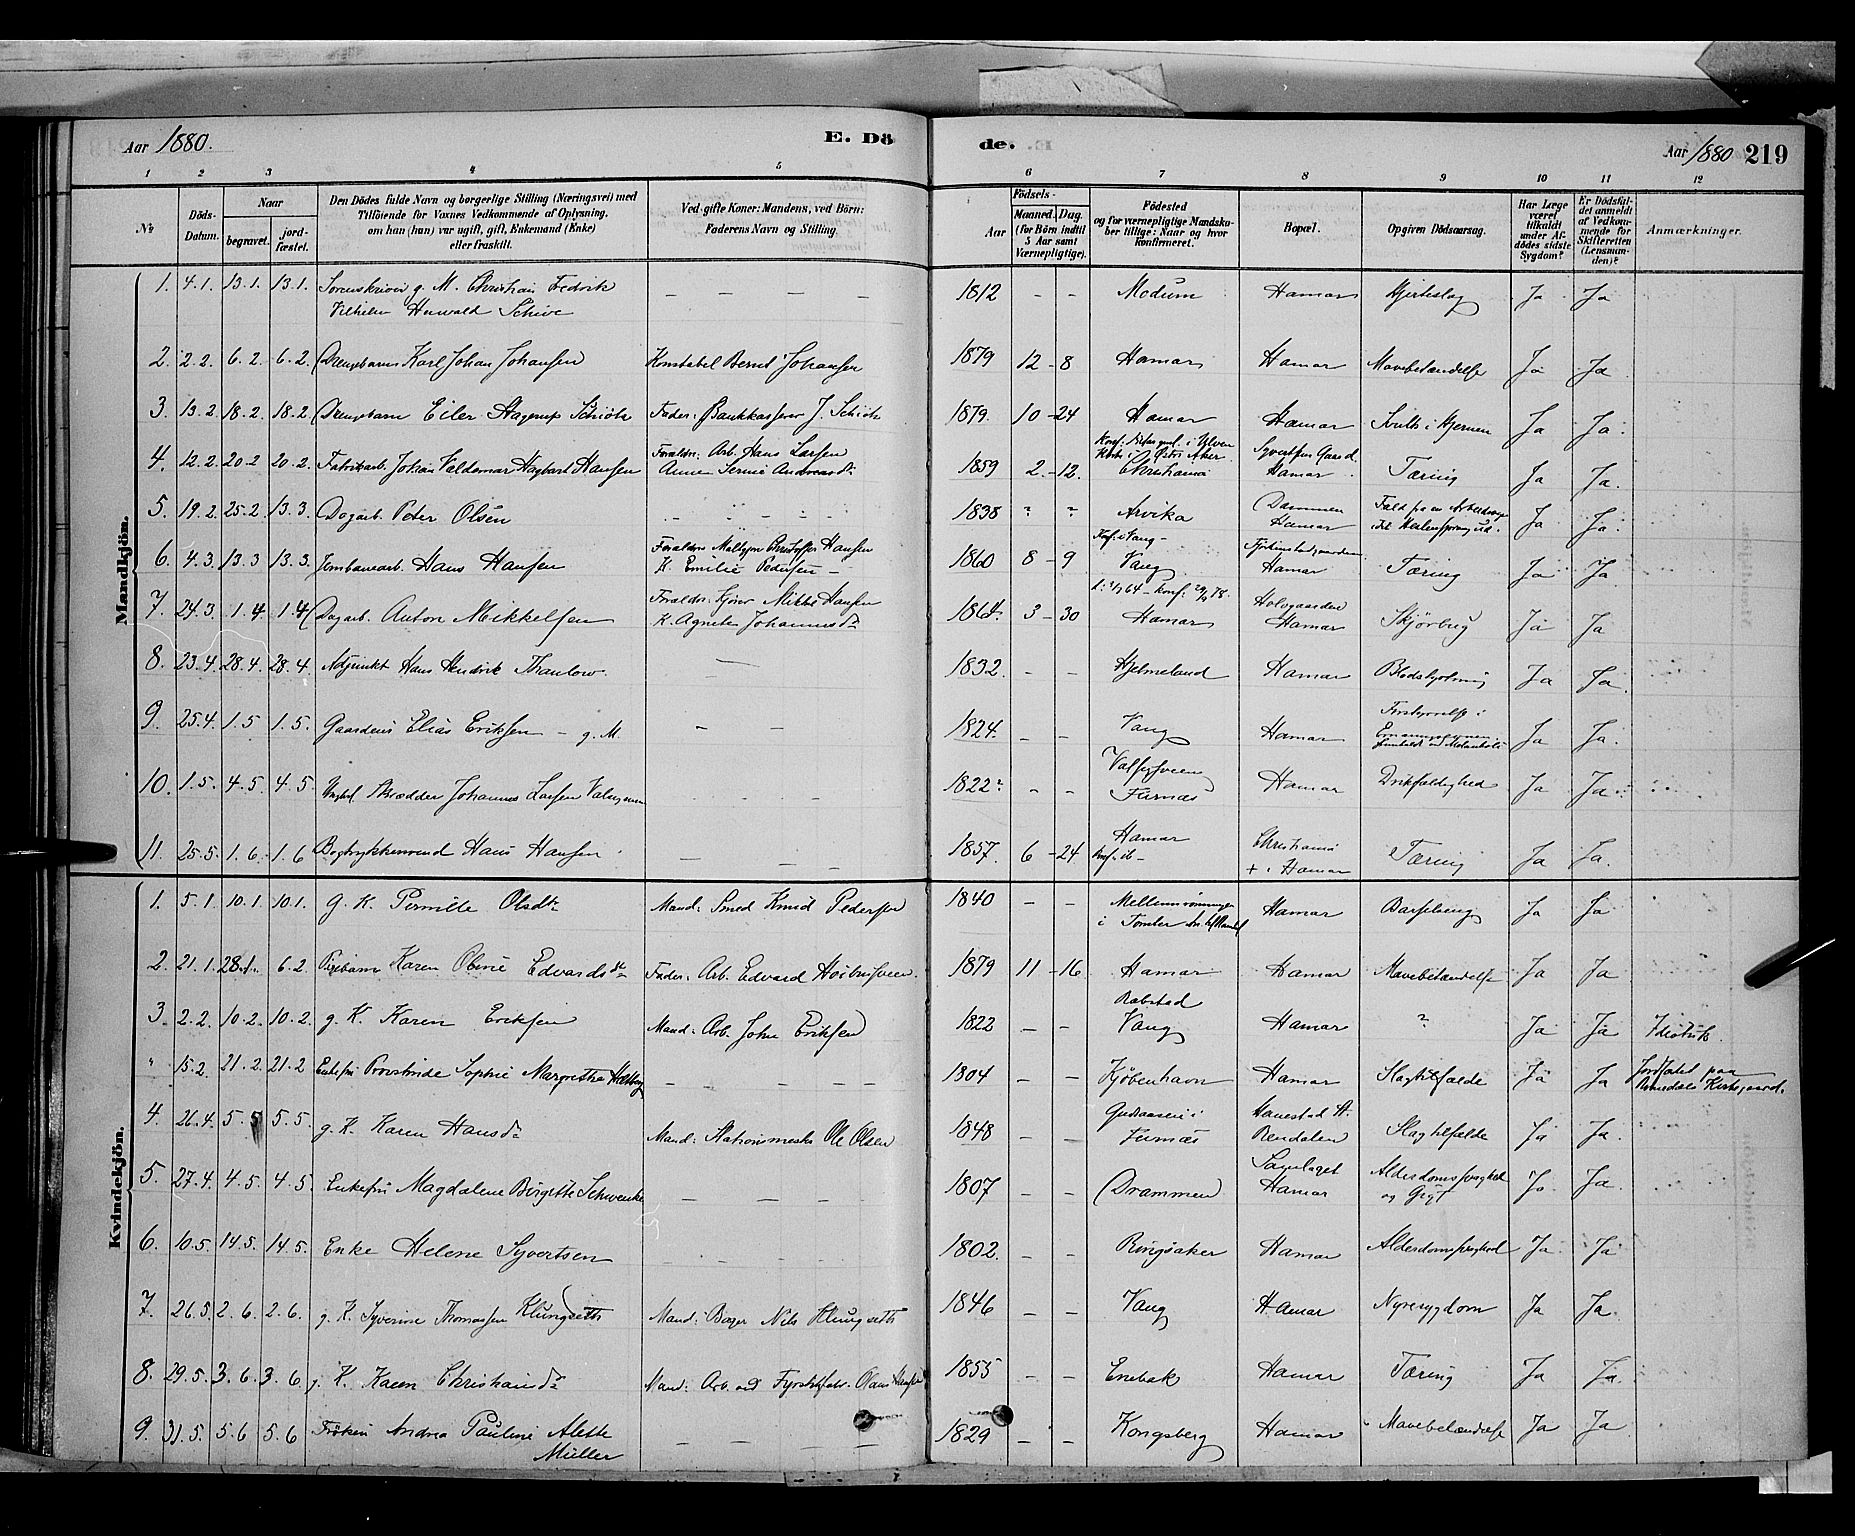 Aar 1880. E. Dö de. Aar 1880 219
1 2 3 4 5 6 7 8 9 10 11 12
No Döds-Datum. Naar begravet. jord-fæstet. Den Dödes fulde Navn og borgerlige Stilling (Næringsvei) med Tilföiende for Voxnes Vedkommende af Oplysning, om han (hun) var ugift, gift, Enkemand (Enke) eller fraskilt. Ved gifte Koner: Mandens, ved Börn: Faderens Navn og Stilling. Aar Födsels- Maaned. Dag. (for Börn indtil 5 Aar samt Værnepligtige). Födested og for værnepligtige Mandska-ber tillige: Naar og hvor konfirmeret. Bopæl. Opgiven Dödsaarsag. Har Læge været tilkaldt under Af-dödes sidste Sygdom? Er Dödsfal-det anmeldt af Vedkom-mende for Skifteretten (Lensman-den)? Anmærkninger.
Mandkjön.
1. 4.1. 13.1. 13.1. Sorenskriver g. M. Christian Fedrik — — — — 1812 — — Modum Hamar Hjerteslag Ja Ja
Vilhelm Schive
2. 2.2. 6.2. 6.2. Drengebarn Karl Johan Johansen Konstabel Bernt Johansen 1879 12 - 8 Hamar Hamar Mavebetændelse Ja Ja
3. 13.2. 18.2. 18.2. Drengebarn Eiler Hagerup Schiötz Fader: Bankkasserer J. Schiötz 1879. 10 - 24 Hamar Hamar i Hjernen Ja Ja.
4. 12.2. 20.2 20.2. Fabrikarb. Johan Valdemar Hagbart Hansen Forældre: Arb. Hans Larsen
Anne 1859 2 - 12. Christiania Hamar Tæring Ja Ja.
5. 19.2. 25.2. 13.3. Dagarb. Peter Olsen 1838 ? ? Arvika Hamar Fald Ja Ja.
6. 4.3. 13.3 13.3. Jernbanearb. Hans Hansen Forældre Hansen
K. Emilie Pedersen - 1860 8 - 9 Konf. i Vang - Vang Hamar Tæring Ja Ja
7. 24.3. 1.4 1.4 Dagarb. Anton Mikkelsen Forældre Kjører Hansen
K. Agnete Johannesdr 1864. 3 - 30 Hamar Hamar Skjørbug Ja Ja
8. 23.4. 28.4. 28.4. Adjunkt Hans Hendrik Thaulow. — 1832. — — Hjelmeland Hamar Ja Ja.
9. 25.4. 1.5. 1.5. Gaardeier Elias Eriksen — g. M. — — 1824. — — Vang Hamar Ja Ja.
10. 1.5. 4.5. 4.5. Skrædder Johannes Larsen 1822? — — Furnæs Hamar Drikfældighed Ja Ja
11. 25.5. 1.6. 1.6 Bogtrykkersvend Hans Hansen — — 1857. 6 - 24 Hamar Christiania
+ i Hamar Tæring Ja Ja.
Kvindekjön.
1. 5.1. 10.1. 10.1. g. K. Pernille Olsdr Mand: Smed Knud Pedersen 1840 — — i Hamar Barselseng Ja Ja
2. 21.1. 28.1. 6.2. Pigebarn Karen Edvardsdr Fader: Arb. Edvard 1879 11 - 16 Hamar Hamar Mavebetændelse Ja Ja
3. 2.2. 10.2. 10.2. g. K. Karen Eriksen Mand: Arb. John Eriksen 1822 — — Vang Hamar ? Ja Ja Idiotisk.
" 15.2. 21.2. 21.2 Enkefru Provstinde Sophie Margrethe — — — — 1804 — — Kjöbenhavn Hamar Slagtilfælde Ja Ja Jordfæstet paa
Romedals Kirkegaard.
4. 26.4. 5.5 5.5. g. K. Karen Hansdr Mand: Stationsmester Ole Olsen 1848 — — Furnæs Hanestad St.
Rendalen Slagtilfælde Ja Ja.
5. 27.4. 4.5. 4.5. Enkefru Magdalene Birgitte Schwenke — — — — 1807 — — Drammen
Hamar Alderdomssvaghed
og Gigt Ja. Ja.
6. 10.5. 14.5. 14.5. Enke Helene Syvertsen 1802. — — Ringsaker Hamar Alderdomssvaghed Ja. Ja
7. 26.5. 2.6. 2.6. g. K. Syverine Thomassen Klungseth Mand: Borger Nils Klungseth 1846 — — Vang Hamar Nyresygdom Ja Ja.
8. 29.5. 3.6. 3.6. g. K. Karen Christiansdr Mand: Arb. ved Olaus Hansen 1855 — — Enebak Hamar Tæring Ja Ja.
9. 31.5. 5.6 5.6 Fröken Andrea Pauline Alette — — — — 1829 — — Kongsberg Hamar Mavebetændelse Ja Ja
Müller